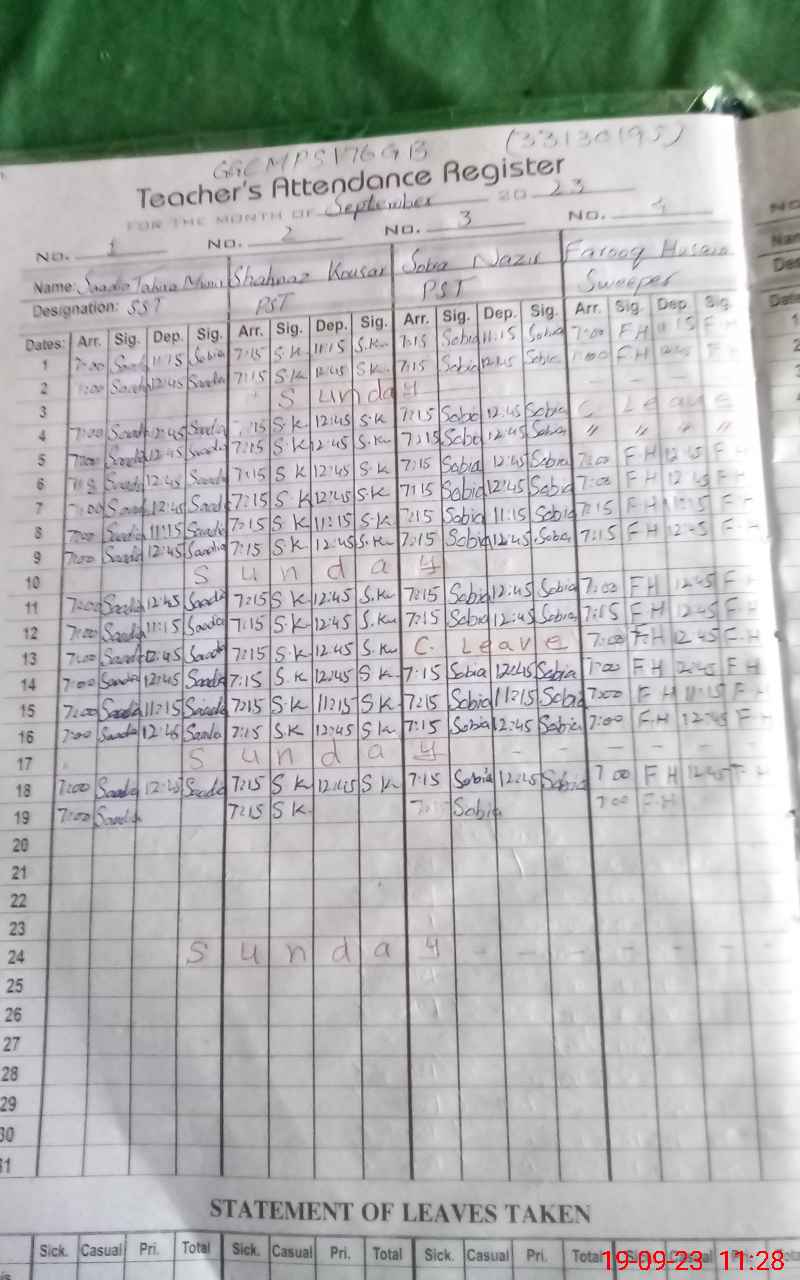 (33130195)
Teacher's Attendance Register
FOR THE MONTH OF September 2023
No. 1 No. 2 No. 3 No. 4
Name: Saadia Tahira Shahnaz Kousar Sobia Nazir Farooq
Designation: SST PST PST Sweeper
Dates: Arr. Sig. Dep. Sig. Arr. Sig. Dep. Sig. Arr. Sig. Dep. Sig. Arr. Sig. Dep. Sig.
1 7:00 11:15 7:15 S.K 11:15 S.K 7:15 Sobia 11:15 Sobia 7:00 F.H 11:15 F.H
2 12:45 Saadia 7:15 S.K 12:45 S.K 7:15 Sobia 12:45 Sobia F.H 12:45
3 Sunday
4 7:00 Saadia 12:45 Saadia S.K 12:45 S.K 7:15 Sobia 12:45 Sobia C. Leave
5 7:00 Saadia 12:45 Saadia 7:15 S.K 12:45 S.K 7:15 Sobia 12:45 Sobia " " " "
6 Saadia 12:45 Saadia 7:15 S K 12:45 S.K 7:15 Sobia 12:45 Sobia 7:00 F H 12 45 F
7 Saadia 12:45 Saadia 7:15 S.K 12:45 S.K 7:15 Sobia 12:45 Sobia 7:00 F H 12 45 F
8 7:00 Saadia 11:15 Saadia 7:15 S K 11:15 S.K 7:15 Sobia 11:15 Sobia 7:15 F H 11:15 F
9 7:00 Saadia 12:45 Saadia 7:15 S K 12:45 S.K 7:15 Sobia 12:45 Sobia 7:15 F H 12:45 F
10 Sunday
11 7:00 Saadia 12:45 Saadia 7:15 S K 12:45 S.K 7:15 Sobia 12:45 Sobia 7:00 F H 12:45 F
12 7:00 Saadia 11:15 Saadia 7:15 S.K 12:45 S.K 7:15 Sobia 12:45 Sobia 7:15 F H 12:45 F
13 7:00 Saadia 12:45 Saadia 7:15 S.K 12:45 S.K C. Leave 7:00 F.H 12 45 F.H
14 7:00 Saadia 12:45 Saadia 7:15 S.K 12:45 S K 7:15 Sobia 12:45 Sobia 7:00 F H 12:45 F H
15 7:00 Saadia 11:15 Saadia 7:15 S.K 11:15 S K 7:15 Sobia 11:15 Sobia 7:00 F H 11:15 F
16 7:00 Saadia 12:45 Saadia 7:15 S.K 12:45 S K 7:15 Sobia 12:45 Sobia 7:00 F.H 12:45 F
17 Sunday - - - - - -
18 7:00 Saadia 12:45 Saadia 7:15 S K 12:45 S K 7:15 Sobia 12:45 Sobia 7 00 F H 12:45 F
19 7:00 Saadia 7:15 S K Sobia 7 00 F.H
20
21
22
23
24 Sunday - - - - - -
25
26
27
28
29
30
31
STATEMENT OF LEAVES TAKEN
Sick. Casual Pri. Total Sick. Casual Pri. Total Sick. Casual Pri. Total Sick. Casual Pri.
19-09-23 11:28